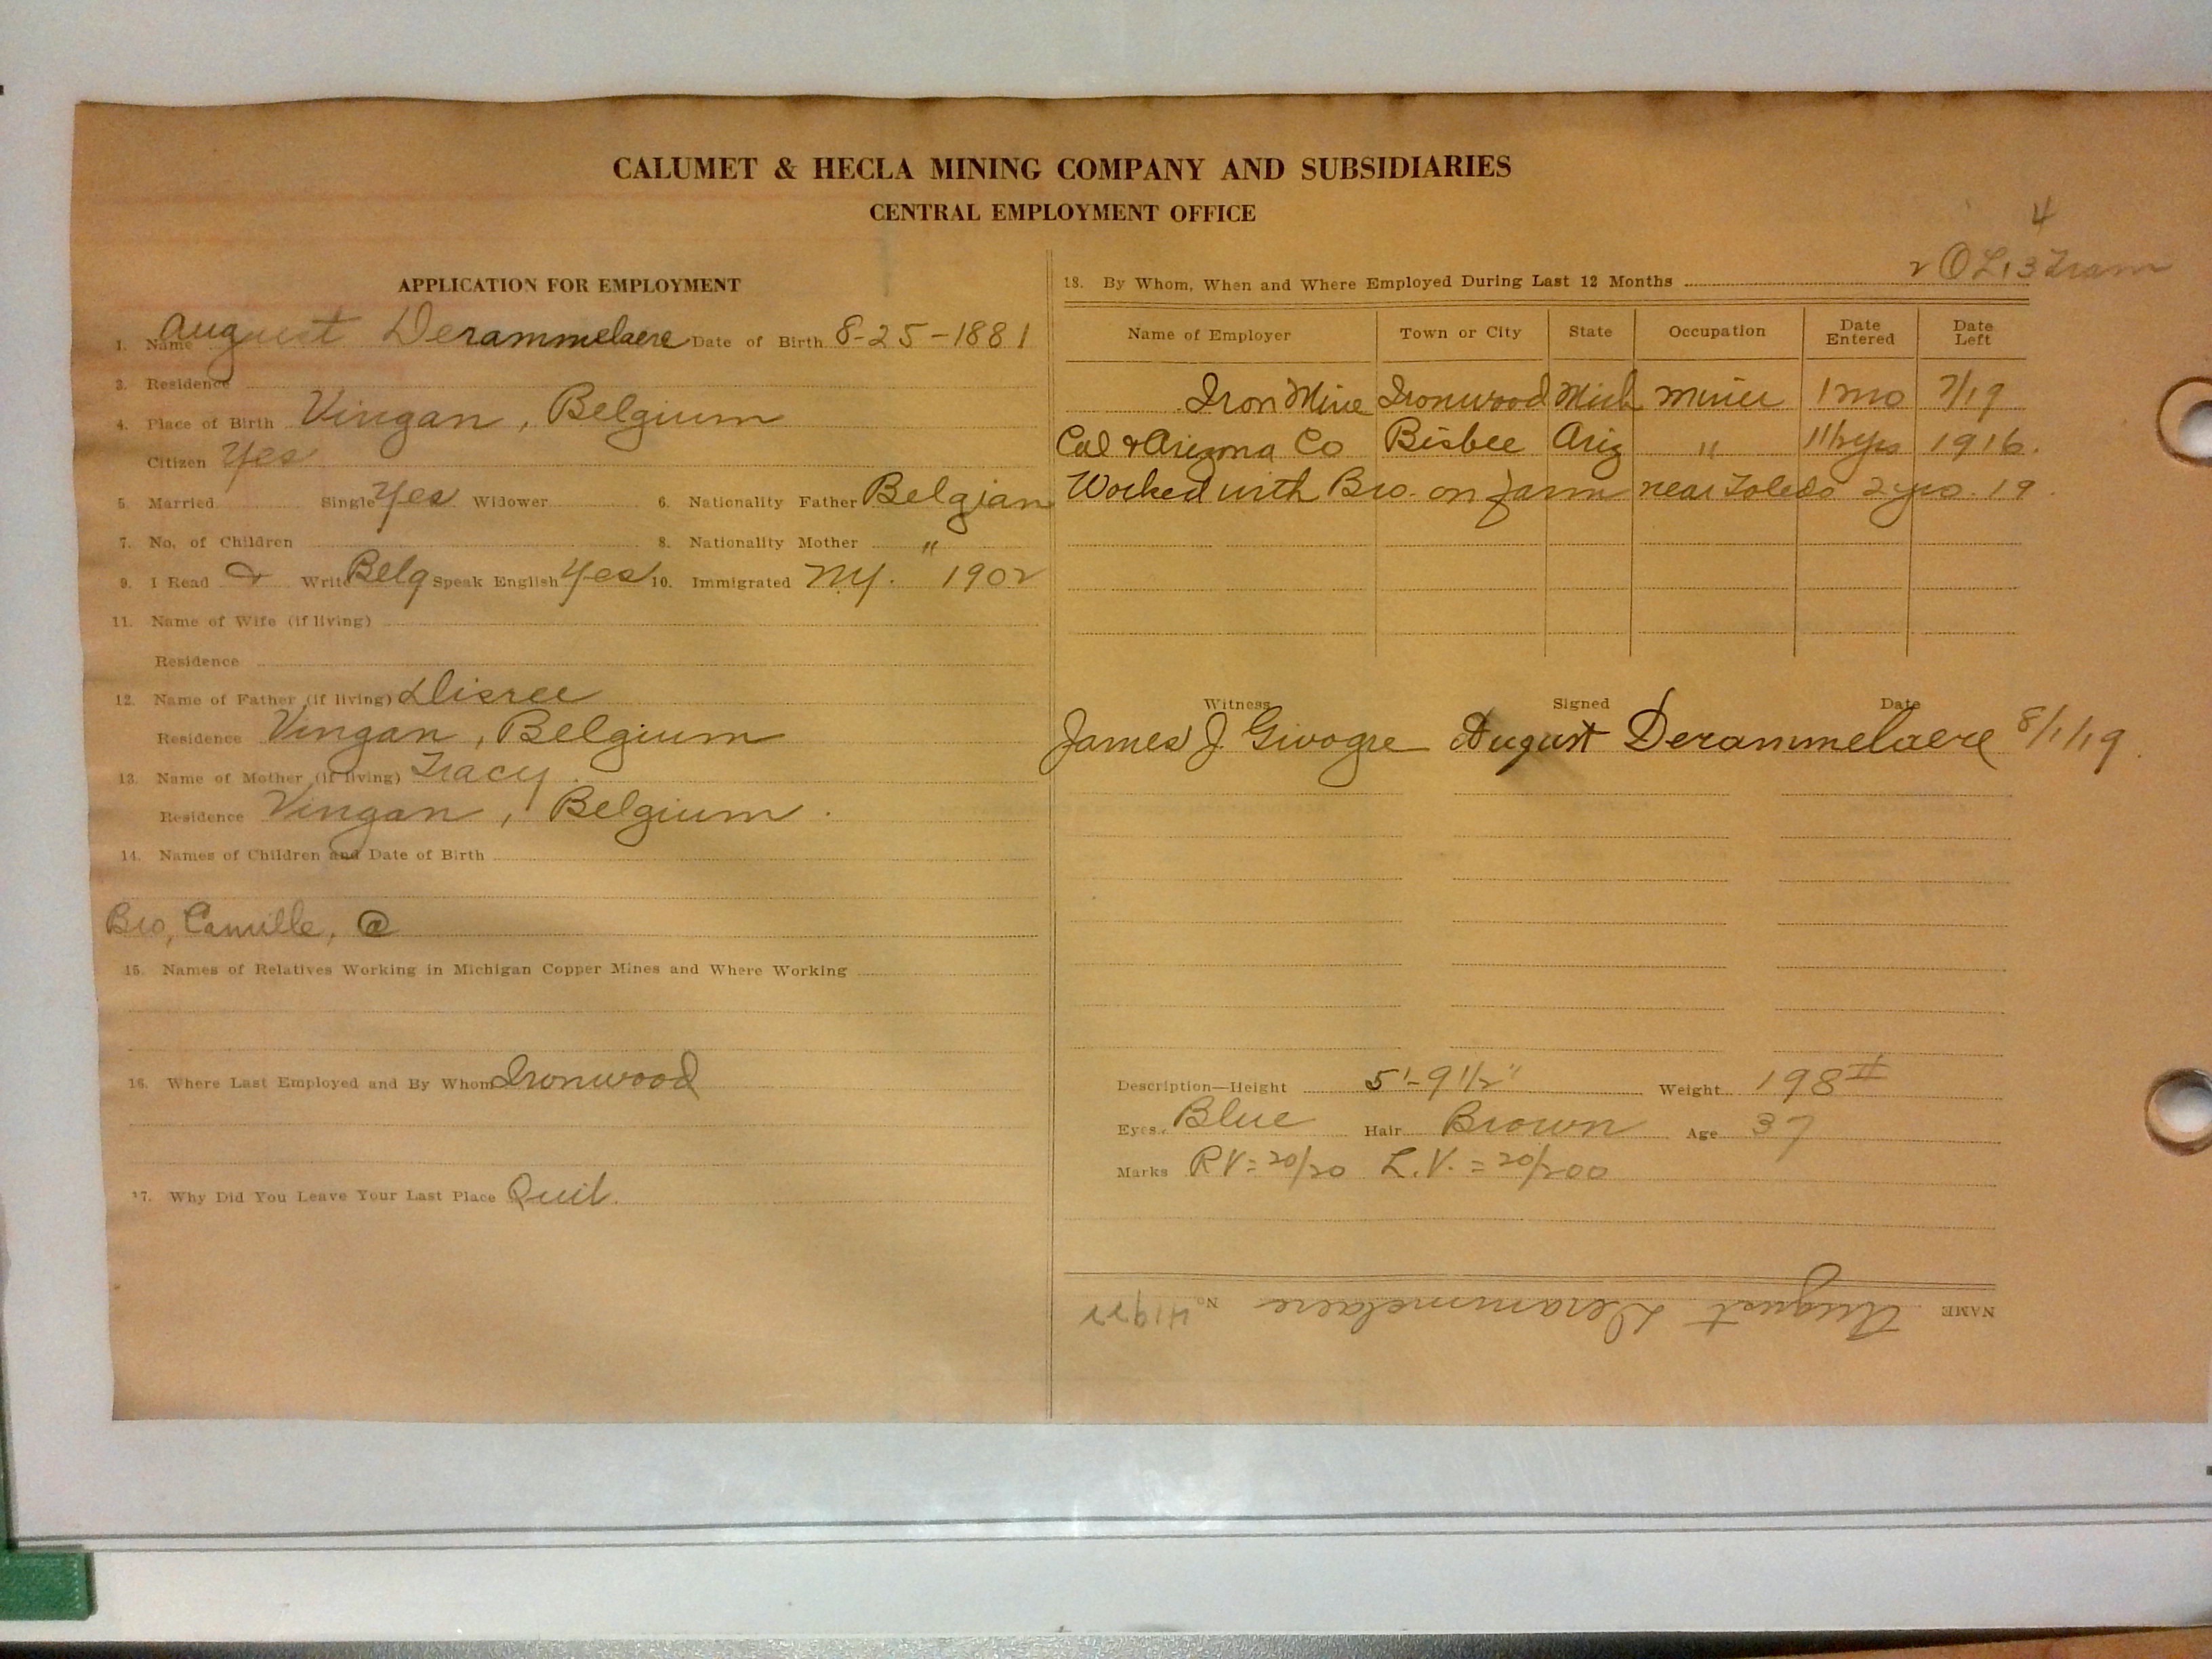 CALUMET & HECLA MINING COMPANY AND SUBSIDIARIES
CENTRAL EMPLOYMENT OFFICE
APPLICATION FOR EMPLOYMENT
1. Name August Derammelaere Date of Birth 8-25-1881
3. Residence
4. Place of Birth Vingan, Belgium
Citizen Yes
5. Married Single Yes Widower 6. Nationality Father Belgian
7. No. of Children 8. Nationality Mother "
9. I Read & Write Belg Speak English Yes 10. Immigrated N.Y. 1902
11. Name of Wife (if living)
Residence
12. Name of Father (if living) Disree
Residence Vingan, Belgium
13. Name of Mother (if living) Tracy.
Residence Vingan, Belgium.
14. Names of Children and Date of Birth
Bro, Camille, @
15. Names of Relatives Working in Michigan Copper Mines and Where Working
16. Where Last Employed and By Whom Ironwood
17. Why Did You Leave Your Last Place Quit.
4
2 O L 13 Tram
18. By Whom, When and Where Employed During Last 12 Months
Name of Employer Town or City State Occupation Date Entered Date Left
Iron Mine Ironwood Mich Miner 1 mo 7/19
Cal & Arizona Co Bisbee Ariz " 1 1/2 yrs 1916.
Worked with Bro. on farm near Toledo 2 yrs. 19.
Witness Signed Date
James J. August Derammelaere 8/1/19
Description—Height 5'-9 1/2" Weight 198 #
Eyes Blue Hair Brown Age 37
Marks R V = 20/20 L. V. = 20/200
NAME August Derammelaere No. 41922